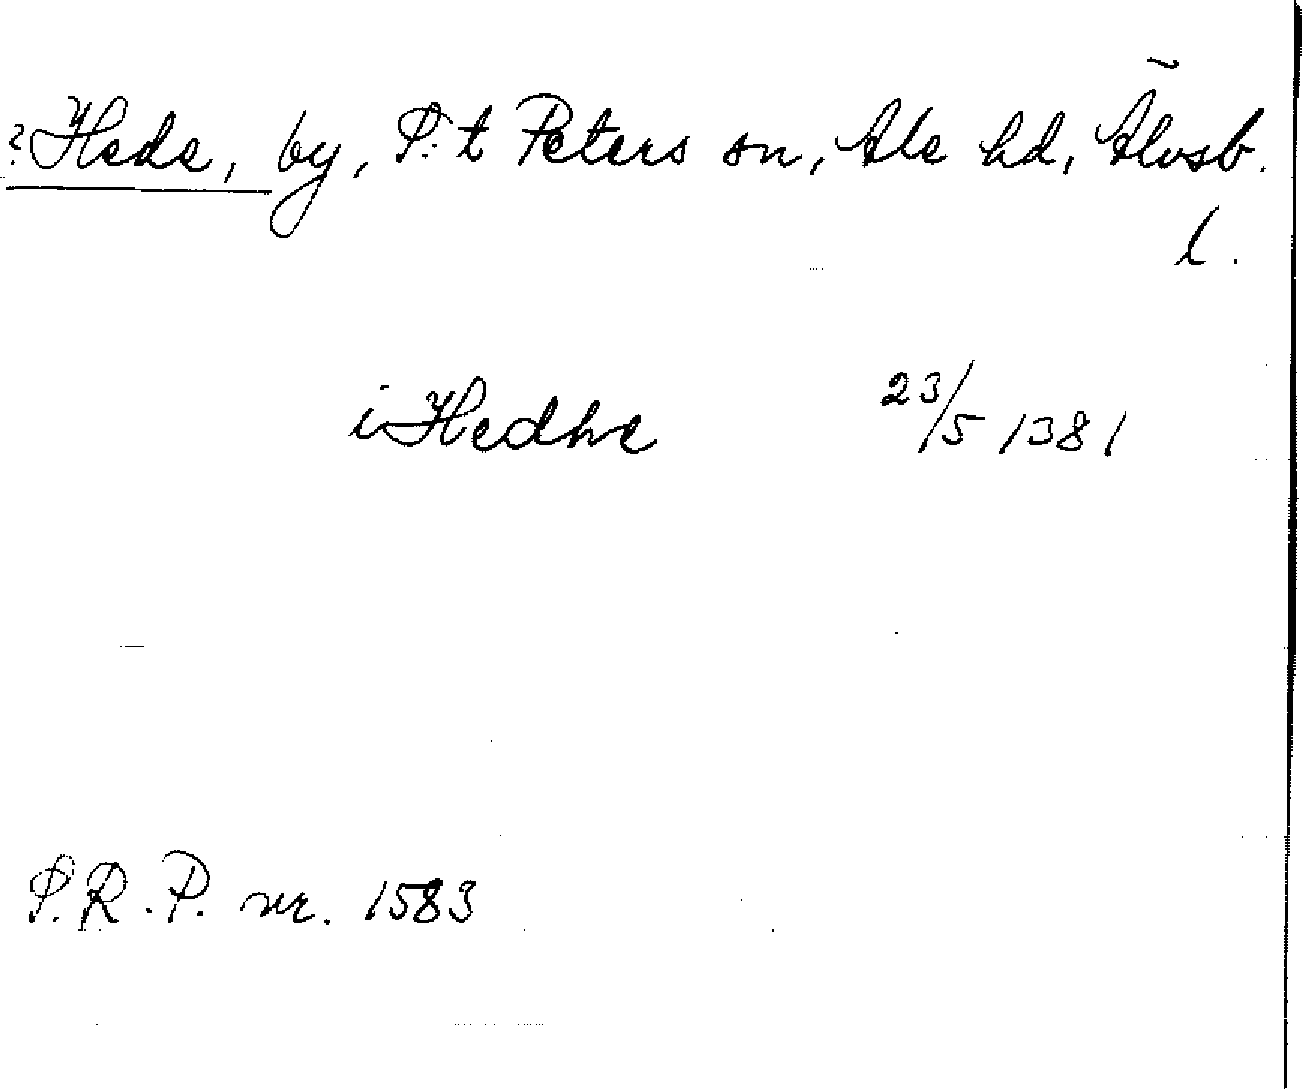 ? Hede, by, S:t Peters sn, Ale hd, Älvsb.
l.
i Hedhe 23/5 1381
S.R.P. nr. 1583